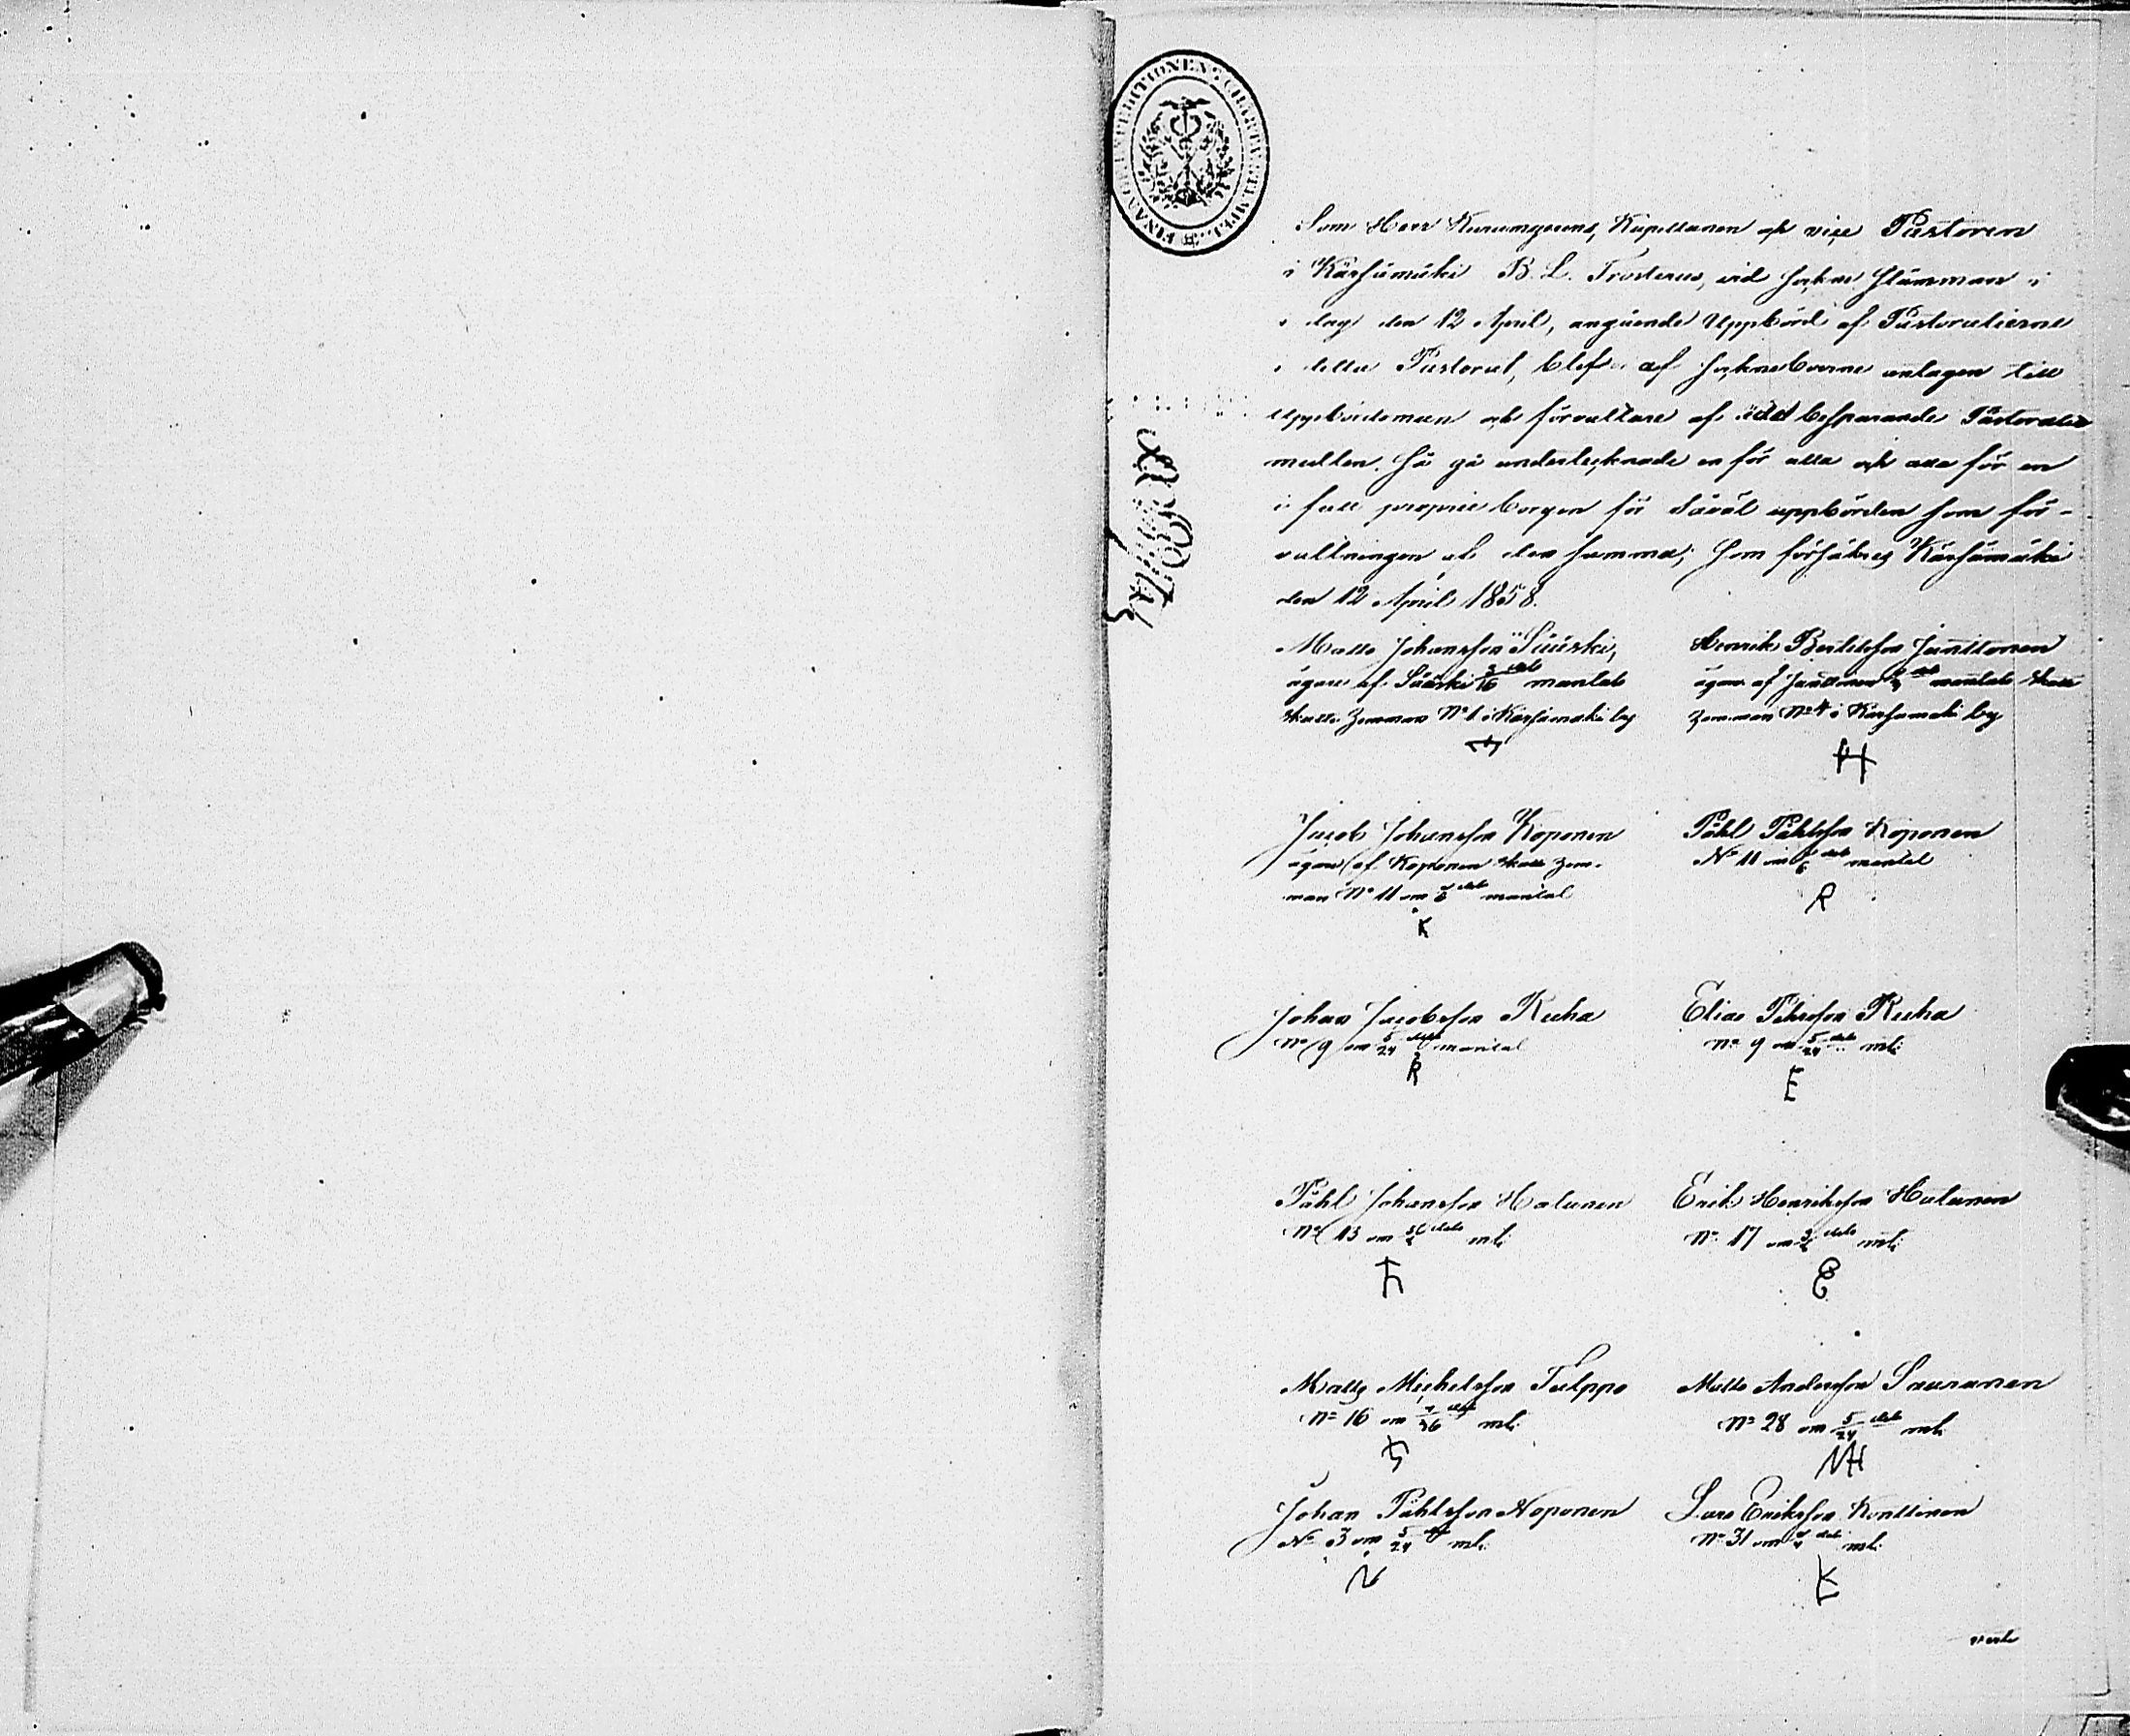 FINANCE EXPEDITIONENS CHARTÆ STEMPEL
Som Herr Kapellanen och vice Pastoren
i Kärsämäki B. L. Frosterus, vid socknestämman i
dag den 12 April, angående Uppbörd af Pastoralierne
i detta Pastorat, blef af sockneboerne antagen till
uppbördsman och förvaltare af besparande Pastoralie
medlen. Så gå undertecknade en för alla och alla för en
i full proprie borgen för såväl uppbörden som för-
valtningen af den samma; som försäkras Kärsämäki
den 12 April 1858.
Matts Johansson Sääski,
ägare af Sääski 3/16 dels mantals
skatte hemman No 1 i Kärsämäki by
Henrik Bertilsson Jänttonen
ägare af dels mantals skatte
hemman No 4 i Kärsämäki by
H
Jacob Johansson Koponen
ägare af Koponen skatte hem-
man No 11 om dels mantal
K
Påhl Påhlsson Koponen
No 11 om dels mantal
R
Johan Jacobsson Ruha
No 9 om 5/24 dels mantal
R
Elias Pehrsson Ruha
No 9 om 5/24 dels mtl:
E
Påhl Johansson Halunen
No 13 om dels mtl:
Erik Henriksson Halunen
No 17 om dels mtl:
E
Matts Michelsson Tulppo
No 16 om dels mtl:
Matts Andersson Sauranen
No 28 om 5/24 dels mtl:
Johan Påhlsson Noponen
No 3 om 5/24 dels mtl:
N
Lars Eriksson Konttinen
No 31 om dels mtl: